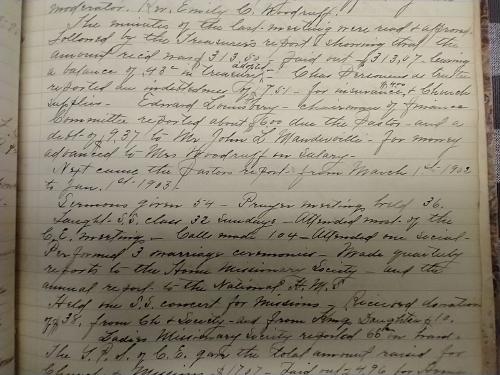 moderator. Rev. Emily C. Woodruff.
The minutes of the last meeting were read & approved
followed by the Treasurers report - showing that the
amount rec'd was $313.50 Paid out $313.07. leaving
a balance of .43c in treasury - Chas Parsons as trustee
added
reported an indebtedness of $7.51 - for insurance & Church
supplies - Edward Lounsbery - chairman of finance
Committee reported about $600 due the Pastor - and a
debt of $9.37 to Mr John L Mandeville - for money
advanced to Mrs Woodruff on salary -
Next came the Pastors report - from March 1st - 1902
to Jan. 1st - 1903.
Sermons given 54 - Prayer meeting held 36.
Taught S.S. class 32 Sundays - Attended most of the
C.E. meeting - Calls made 104 - Attended one social -
Performed 3 marriage ceremonies - Made quarterly
reports to the Home Missionary Society - and the
annual report to the National H.M.S
Held one S.S. concert for Missions - Received donation
of $38. from Ch & Society - and from Kings Daughters $10.
Ladies Missionary Society reported 66c on hand.
The of C.E. gave the total amount raised for
Church & Missions $17.07 - Paid out - 4.96 for Home